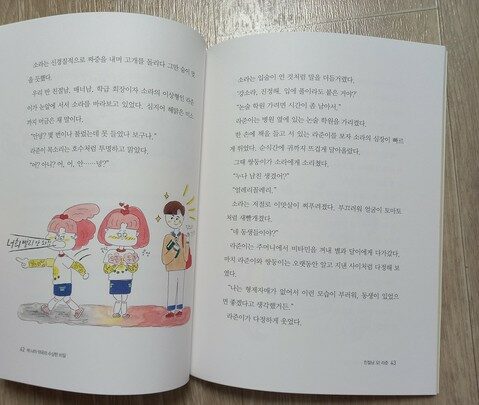 소라는 신경질적으로 짜증을 내며 고개를 돌리다 그만 숨이 멎
을 뻔했다.
우리 반 친절남, 매너남, 학급 회장이자 소라의 이상형인 라준
이가 눈앞에 서서 소라를 바라보고 있었다. 심지어 해맑은 미소
까지 머금은 채 말이다.
"안녕? 몇 번이나 불렀는데 못 들었나 보구나."
라준이 목소리는 호수처럼 투명하고 맑았다.
"어? 아니? 어, 어, 안……녕?"
42
소라는 입술이 언 것처럼 말을 더듬거렸다.
'강소라, 진정해. 입에 풀이라도 붙은 거야?'
"논술 학원 가려면 시간이 좀 남아서."
라준이는 병원 옆에 있는 논술 학원을 가리켰다.
한 손에 책을 들고 서 있는 라준이를 보자 소라의 심장이 빠르
게 뛰었다. 순식간에 귀까지 뜨겁게 달아올랐다.
그때 쌍둥이가 소라에게 소리쳤다.
"누나 남친 생겼어?"
"얼레리꼴레리."
소라는 저절로 이맛살이 찌푸려졌다. 부끄러워 얼굴이 토마토
처럼 새빨개졌다.
"네 동생들이야?"
라준이는 주머니에서 비타민을 꺼내 별과 달이에게 다가갔다.
마치 라준이와 쌍둥이는 오랫동안 알고 지낸 사이처럼 다정해 보
였다.
"나는 형제자매가 없어서 이런 모습이 부러워. 동생이 있었으
면 좋겠다고 생각했거든."
라준이가 다정하게 웃었다.
43